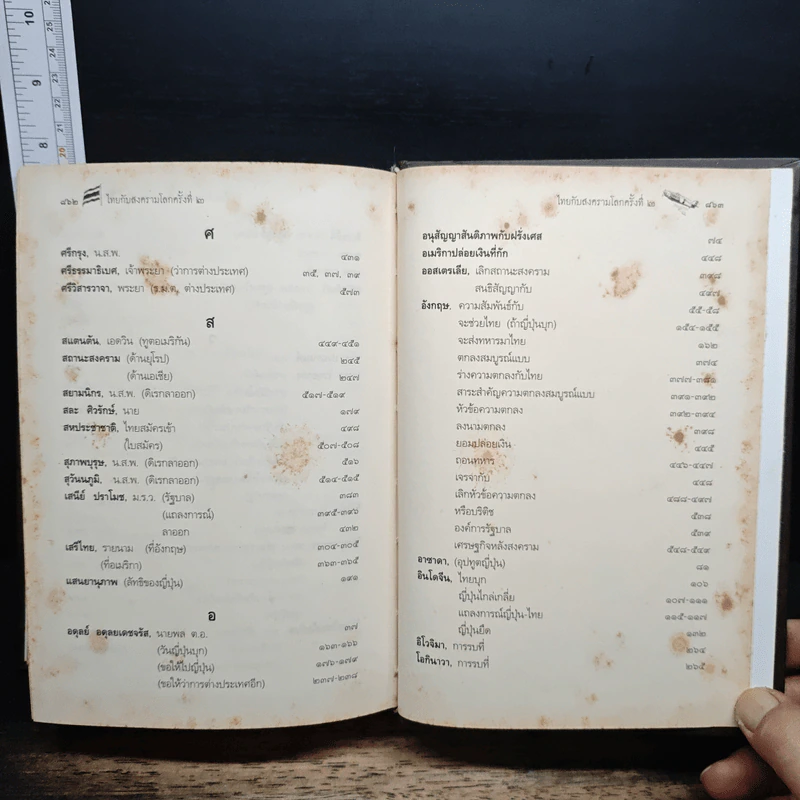 10
9
8
25
24
23
22
21
20
๘๖๒ ไทยกับสงครามโลกครั้งที่ ๒
ศ
ศรีกรุง, น.ส.พ. ๔๓๑
ศรีธรรมาธิเบศ, เจ้าพระยา (ว่าการต่างประเทศ) ๓๕, ๓๗, ๓๙
ศรีวิสารวาจา, พระยา (ร.ม.ต. ต่างประเทศ) ๕๗๓
ส
สแตนตัน, เอดวิน (ทูตอเมริกัน) ๔๔๙-๔๕๑
สถานะสงคราม (ด้านยุโรป) ๒๔๕
(ด้านเอเชีย) ๒๔๗
สยามนิกร, น.ส.พ. (ดิเรกลาออก) ๕๑๗-๕๑๙
สละ ศิวรักษ์, นาย ๑๗๙
สหประชาชาติ, ไทยสมัครเข้า ๔๙๘
(ใบสมัคร) ๕๐๗-๕๐๘
สุภาพบุรุษ, น.ส.พ. (ดิเรกลาออก) ๕๑๖
สุวันนภูมิ, น.ส.พ. (ดิเรกลาออก) ๕๑๔-๕๑๕
เสนีย์ ปราโมช, ม.ร.ว. (รัฐบาล) ๓๘๓
(แถลงการณ์) ๓๙๕-๓๙๖
ลาออก ๔๓๒
เสรีไทย, รายนาม (ที่อังกฤษ) ๓๐๔-๓๐๕
(ที่อเมริกา) ๓๖๓-๓๖๕
แสนยานุภาพ (ลัทธิของญี่ปุ่น) ๑๙๑
อ
อดุลย์ อดุลยเดชจรัส, นายพล ต.อ. ๓๗
(วันญี่ปุ่นบุก) ๑๖๓-๑๖๖
(ขอให้ไปญี่ปุ่น) ๑๗๖-๑๗๙
(ขอให้ว่าการต่างประเทศอีก) ๒๓๗-๒๓๘
ไทยกับสงครามโลกครั้งที่ ๒ ๘๖๓
อนุสัญญาสันติภาพกับฝรั่งเศส ๗๔
อเมริกาปล่อยเงินที่กัก ๔๔๘
ออสเตรเลีย, เลิกสถานะสงคราม ๓๙๘
สนธิสัญญากับ ๔๙๗
อังกฤษ, ความสัมพันธ์กับ ๕๕-๕๘
จะช่วยไทย (ถ้าญี่ปุ่นบุก) ๑๕๔-๑๕๕
จะส่งทหารมาไทย ๑๖๒
ตกลงสมบูรณ์แบบ ๓๗๔
ร่างความตกลงกับไทย ๓๗๗-๓๘๑
สาระสำคัญความตกลงสมบูรณ์แบบ ๓๙๑-๓๙๒
หัวข้อความตกลง ๓๙๒-๓๙๔
ลงนามตกลง ๓๙๘
ยอมปล่อยเงิน ๔๔๕
ถอนทหาร ๔๔๖-๔๔๗
เจรจากับ ๔๔๘
เลิกหัวข้อความตกลง ๔๘๘-๔๙๗
หรือบริติช ๕๓๘
องค์การรัฐบาล ๕๓๙
เศรษฐกิจหลังสงคราม ๕๔๘-๕๔๙
อาซาดา, (อุปทูตญี่ปุ่น) ๘๑
อินโดจีน, ไทยบุก ๑๐๖
ญี่ปุ่นไกล่เกลี่ย ๑๐๗-๑๑๑
แถลงการณ์ญี่ปุ่น-ไทย ๑๑๕-๑๑๗
ญี่ปุ่นยึด ๑๓๒
อิโวจิมา, การรบที่ ๒๖๔
โอกินาวา, การรบที่ ๒๖๕